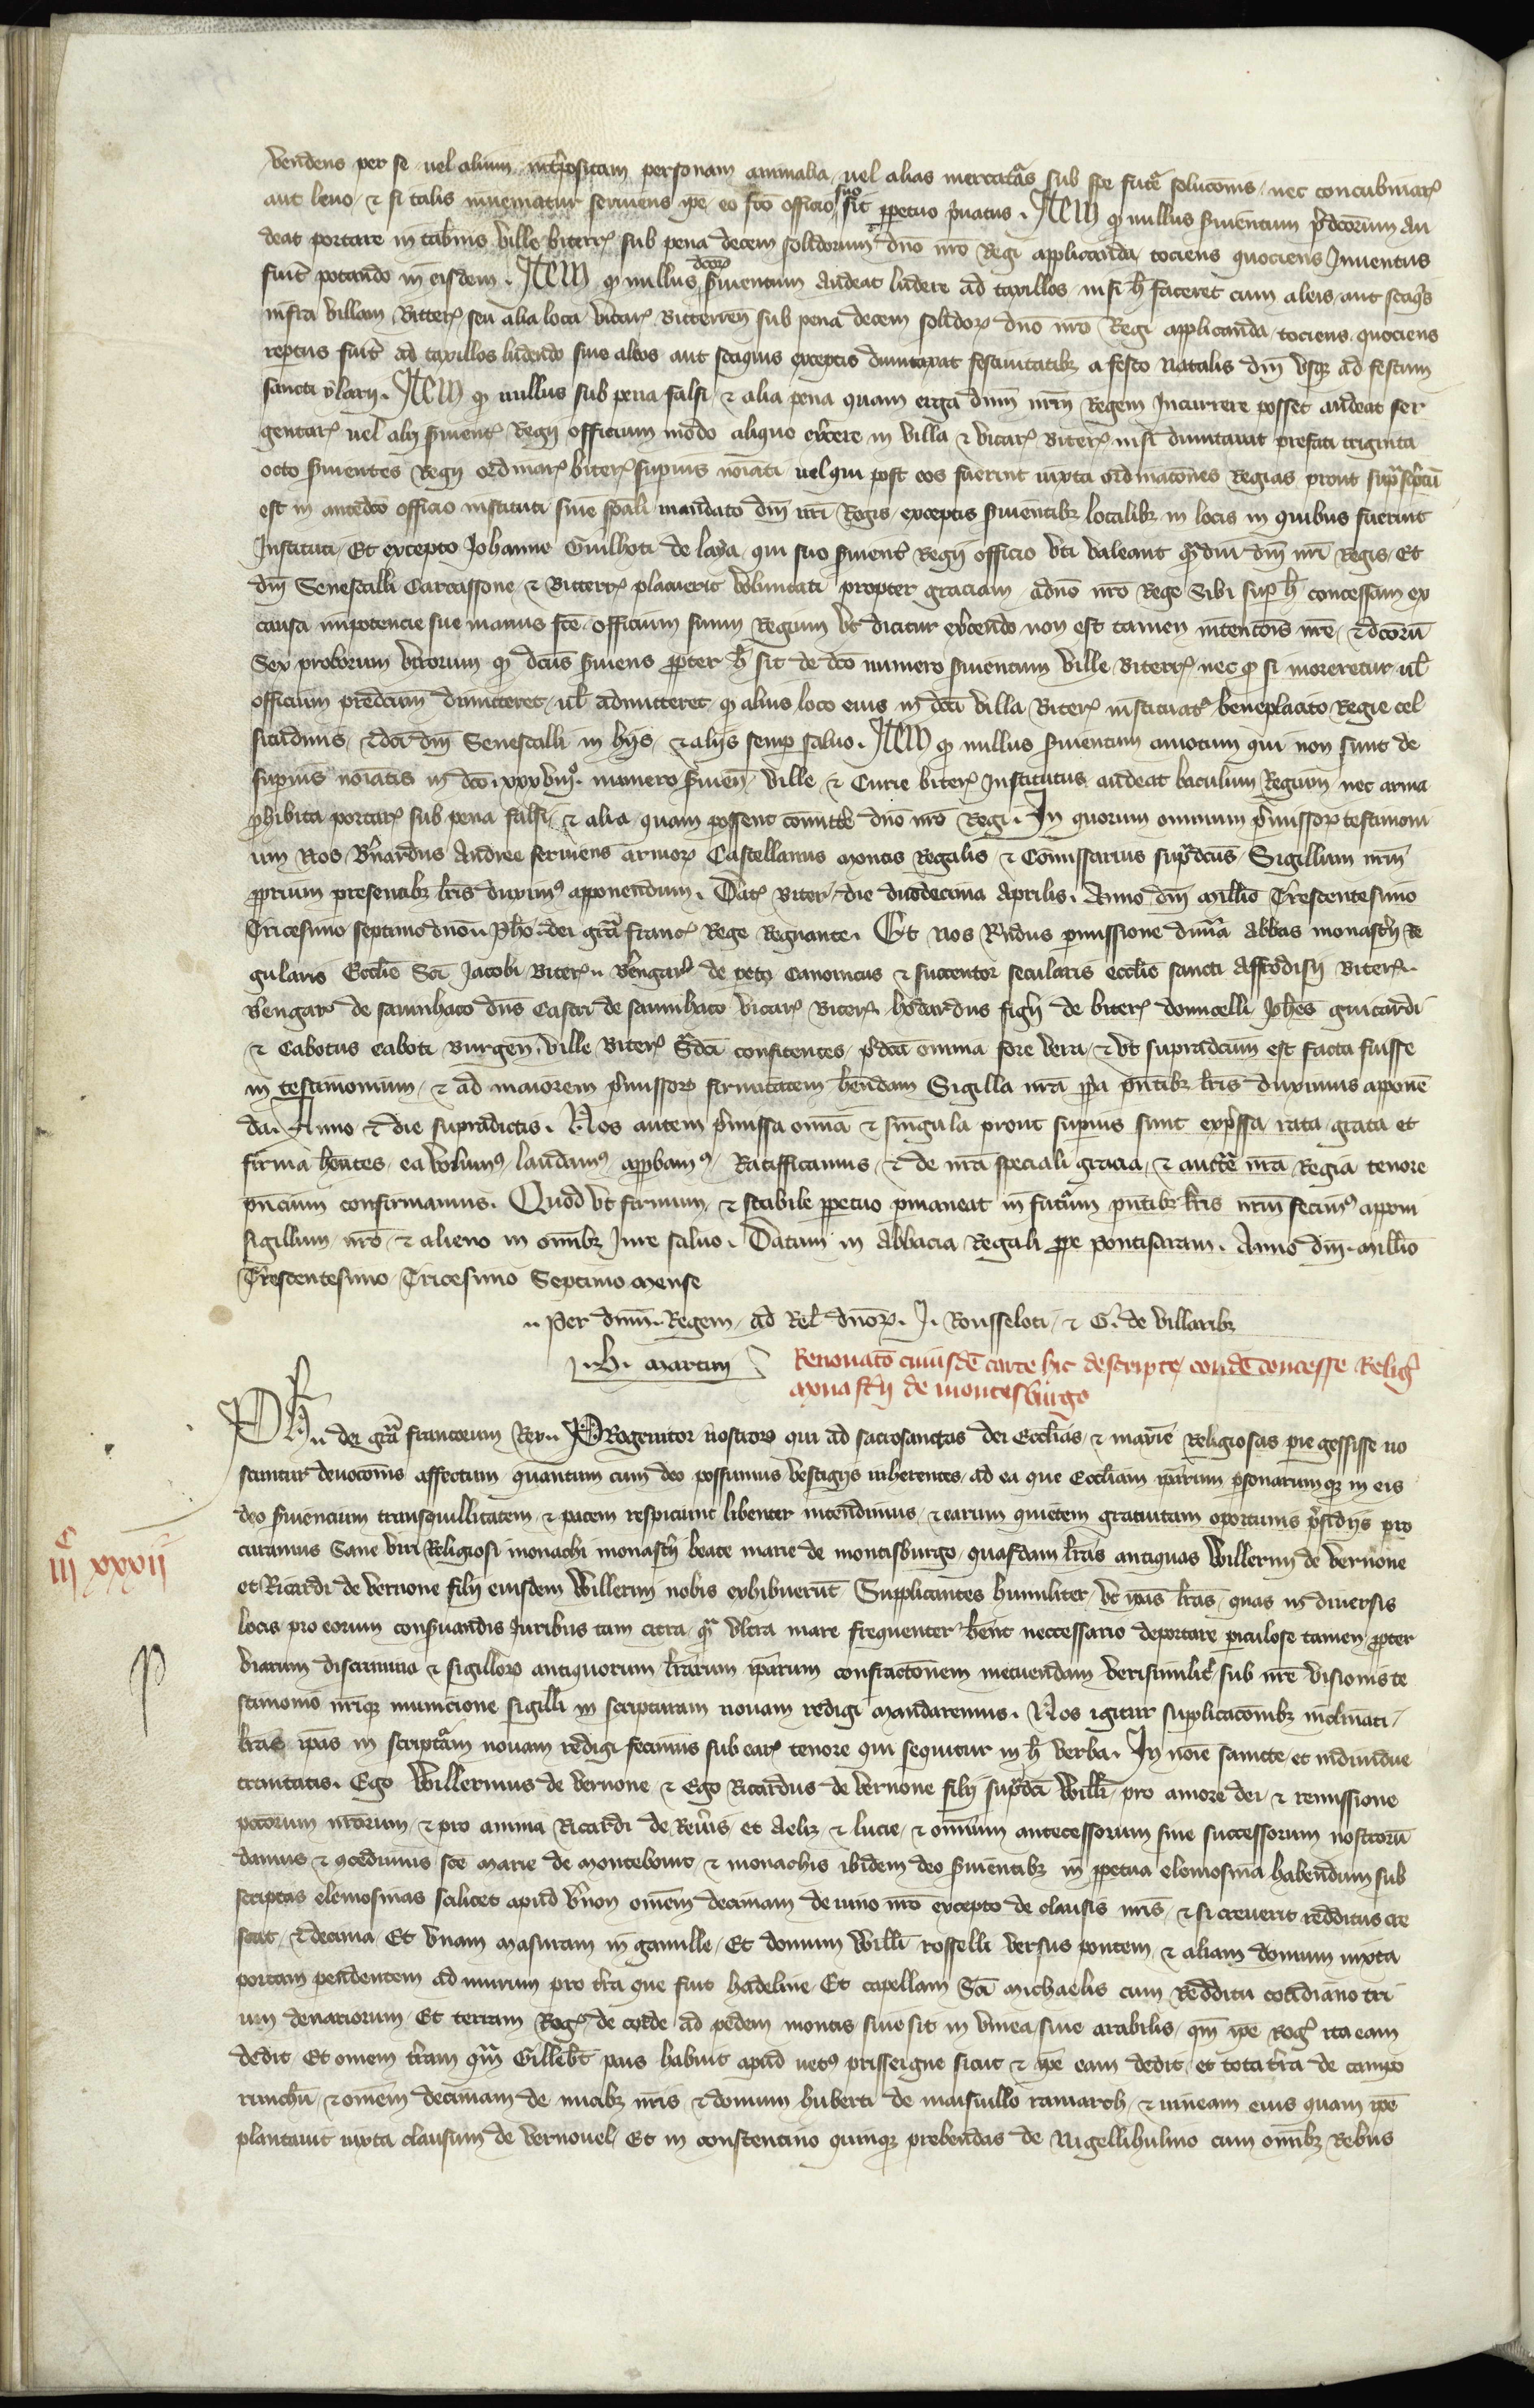 vendens per se vel alium interpositam personam animalia vel alias mercaturas sub spe future solucionis nec concubinar
aut leno ⁊ si talis inveniatur serviens ipse eo facto officio suo sit perpetuo privatus. Item q nullus servientum predictorum au
deat portare in tabernis ville bitterr sub pena decem solidorum dno nro Regi applicanda tociens quociens Inventus
fuit potando in eisdem. Item q nullus dcorum servientum audeat ludere ad taxillos nisi h faceret cum aleis aut scaquis
infra villam Bitterr seu alia loca vicar Bitterren sub pena decem solidor dno nro Regi applicanda tociens quociens
reptus fuit ad taxillos ludendo sine aleis aut scaquis exceptis dumtaxat festivitatibz a festo Natalis dni usqz ad festum
sancti ylarii. Item q nullus sub pena falsi ⁊ alia pena quam erga dnm nrm Regem Incurrere posset audeat ser
gentar vel alii servient Regii officium modo aliquo exercere in villa ⁊ vicar Biterr nisi dumtaxat prefati triginta
octo servientes Regii ordinar biterr superius noiati vel qui post eos fuerint iuxta ordinacones Regias prout supra scptu
est in antedco officio instituti sine spali mandato dni nri Regis exceptis servientibz localibz in locis in quibus fuerint
Instituti Et excepto Johanne Guilhoti de laya qui suo servient Regii officio uti valeant qdiu dni nri Regis Et
dni Senescalli Carcassone ⁊ Bitterr placuerit voluntati propter graciam a dno nro Rege Sibi sup h concessam ex
causa impotencie sue manus fce officium suum Regium ut dicitur excendo non est tamen intencois nre ⁊ dcoru
Sex proborum virorum q dcus serviens ppter h sit de dco numero servientum ville Biterr nec q si moreretur vl
officium predcum dimitteret vl admitteret q alius loco eius in dca villa Biterr instituat beneplacito Regie cel
situdinis ⁊ dci dni Senescalli in hiis ⁊ aliis semp salvo. Item q nullus servientum amotum qui non sunt de
superius noiatis in dco xxxviii numero servien ville ⁊ Curie biterr Institutus audeat baculum Regium nec arma
phibita portar sub pena falsi ⁊ alia quam possent comitte dno nro Regi. In quorum omnium pmissor testimoni
um Nos Bnardus Andree serviens armor Castellanus montis Regalis ⁊ Comissarius supdcus Sigillum nrm
pprium presentibz lris duximus apponendum. Dat Biterr die duodecima Aprilis. Anno dni millio Trescentesimo
Tricesimo septimo dno Pho dei gra franc Rege Regnante. Et nos Rndus permissione divina abbas monasterii Re
gularis Ecclie Sci Jacobi Biterr. Bengar de petz canonicus ⁊ succentor secularis ecclie sancti Affrodisii Biterr.
Bengar de saunhaco dns Castri de saunhaco vicar Biterr hodardus figii de biterr domicelli Johes guitardi
⁊ Cabotus caboti Burgen ville Biterr Sdci consitentes pdca omnia fore vera ⁊ ut supradcum est facta fuisse
in testimonium ⁊ ad maiorem pmissor firmitatem hendam Sigilla nra ppa pntibz lris duximus apponen
da. Anno ⁊ die supradictis. Nos autem pmissa omia ⁊ singula prout superius sunt expssa rata grata et
firma hentes ea volumus laudamus approbamus Ratifficamus ⁊ de nra speciali gracia ⁊ aucte nra Regia tenore
pncium confirmamus. Quod ut firmum ⁊ stabile ppetuo pmaneat in futurum pntibz lris nrm fecimus apponi
sigillum nro ⁊ alieno in omibz Jure salvo. Datum in Abbacia Regali ppe pontisaram. Anno dni millio
Trescentesimo Tricesimo Septimo mense
Per dnm Regem ad Rel dnor J. Rousseloti ⁊ G. de villaribz
H. martin
Renovato cuiusde carte hic descripte conde concesse Relig
monastii de montesburgo
Ph dei gra francorum Rex. Progenitor nostror qui ad sacrosanctas dei Ecclias ⁊ maxie Religiosas pie gessisse no
scuntur devoconis affectum quantum cum deo possumus vestigiis inherentes ad ea que Eccliam ipsarum psonarumqz in eis
deo serviencium tranquillitatem ⁊ pacem respiciunt libenter intendimus ⁊ earum quietem gratuitam oportunis psidiis pro
curamus Sane viri Religiosi monachi monastii beate marie de montisburgo quasdam lras antiquas Willermi de Vernone
et Ricardi de vernone filii eiusdem Willermi nobis exhibuerut Supplicantes humiliter ut ipas lras quas in diversis
locis pro eorum consvandis Juribus tam citra q ultra mare frequenter hent neccessario deportare piculose tamen ppter
viarum discrimina ⁊ sigillor antiquorum lrarum iparum confractonem metuendam verisimilit sub nre visionis te
stimonio nriqz municione sigilli in scripturam novam redigi mandaremus. Nos igitur supplicaconibz inclinati
lras ipas in scripturam novam redigi fecimus sub ear tenore qui sequitur in h verba. In noie sancte et individue
trinitatis. Ego Willermus de vernone ⁊ Ego Ricardus de vernone filii supdci Willi pro amore dei ⁊ remissione
pctorum nrorum ⁊ pro anima Ricardi de Revis et Aeliz ⁊ lucie ⁊ omium antecessorum sive successorum nostroru
damus ⁊ concedimus sce marie de monteborc ⁊ monachis ibidem deo servientibz in ppetua elemosina habendam sub
scriptas elemosinas scilicet apud vnon omem decimam de vino nro excepto de clausis nris ⁊ si creverit redditus cre
scat ⁊ decima Et unam masuram in gamille Et domum Willi rosselli versus pontem ⁊ aliam domum iuxta
portam pendentem ad murum pro tra que fuit hadeline Et capellam Sci michaelis cum Redditu cotidiano tri
um denariorum Et terram Rog de corde ad pedem montis sive sit in vinea sive arabilis qm ipe Rog ita eam
dedit Et omem tram qm Gillebt pais habuit apud vetus prisseigne sicut ⁊ ipe eam dedit et tota tra de campo
runchu ⁊ omem decimam de nucibz nris ⁊ domum huberti de maisnillo ramarth ⁊ vineam eius quam ipe
plantavit iuxta clausum de vernonel Et in constentino quinqz prebendas de Nigellihulmo cum omibz Rebus
iiiᶜ xxxii
p